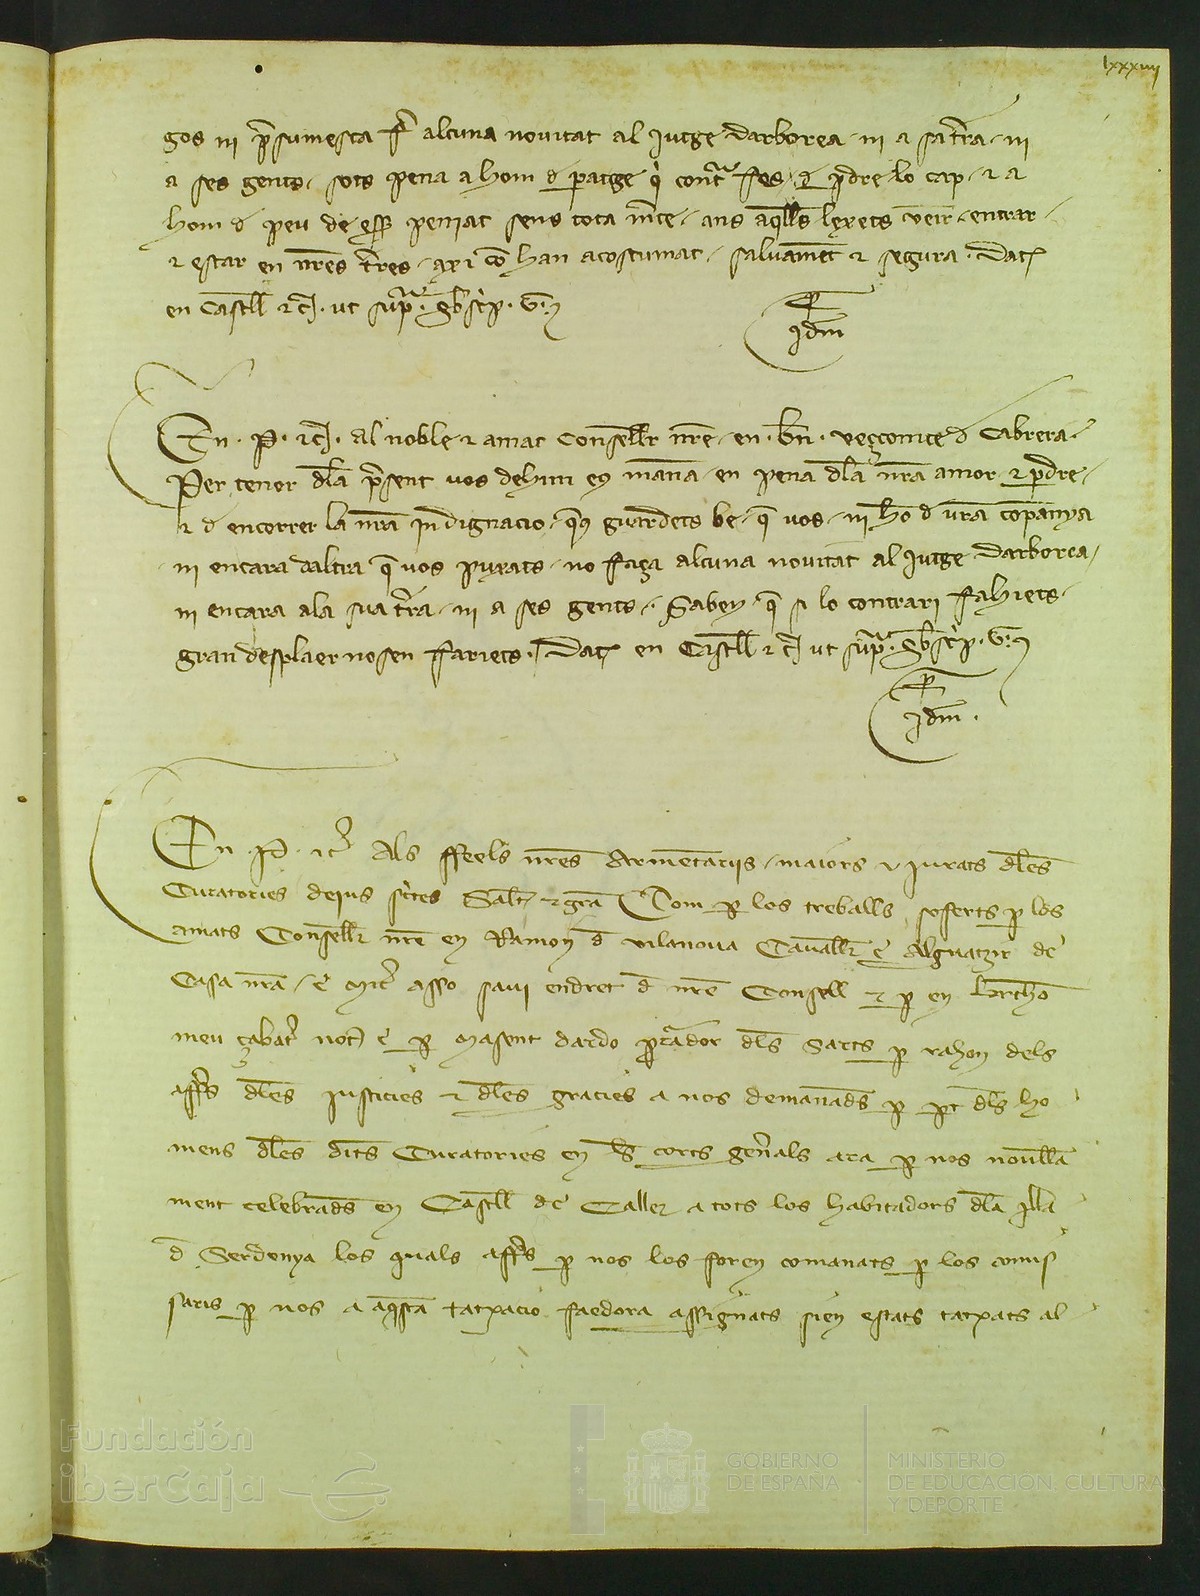 lxxxiiij
gos ni p̃sumesca fer alcuna novitat al Jutge darborea ni a sa t̃ra ni
a ses gents sots pena a hom d paratge q̃ contra fes d p̃dre lo cap ⁊ a
hom d peu de ess̃ peniat sens tota m̃ce ans aq̃lls lexets venir entrar
⁊ estar en nr̃es t̃res axi cõ han acostumat salvament ⁊ segura Dat̃
en Castell ⁊c̃ ut supra
Idm̃
En P ⁊c̃ al noble ⁊ amat Conseller nr̃e en bñ vezcomte d Cabrera
Per tenor dla p̃sent vos dehim eus manã en pena dla nr̃a amor ⁊ p̃dre
⁊ d encorrer la nr̃a Indignacio q̃us guardets be q̃ vos ni hõ d vr̃a companya
ni encara daltra q̃ vos puxats no faça alcuna novitat al Jutge darborea
ni encara ala sua t̃ra ni a ses gents Saben q̃ si lo contrari fahiets
gran desplaer nosen fariets Dat̃ en Castell ⁊c̃ ut supra
Idm̃
En P ⁊c̃ Als ffeels nr̃es Armentariis maiors ⁊ Jurats dles
Curatories dejus sc̃tes Salt̃ ⁊ gr̃a Com p los treballs soferts p los
amats Consellers nr̃e en Ramon d vilanova Cavaller e Alguatzir de
Casa nr̃a e Mic̃ asso savi endret d nr̃e Consell ⁊ p en
meu çabat̃ not̃ e p Masent dardo p̃cador dls Sarts p rahon dels
aff̃s dles justicies ⁊ dles gracies a nos demanads p pt dls ho
mens dles dits Curatories en les corts gen̄als ara p nos novella
ment celebrads en Castell de Caller a tots los habitadors dla Illa
d Serdenya los quals aff̃s p nos los foren comanats p los comis
saris p nos a aq̃sta tatxacio faedora assignats sien estats tatxats al
Fundación
iberCaja
GOBIERNO
DE ESPAÑA
MINISTERIO
DE EDUCACIÓN, CULTURA
Y DEPORTE